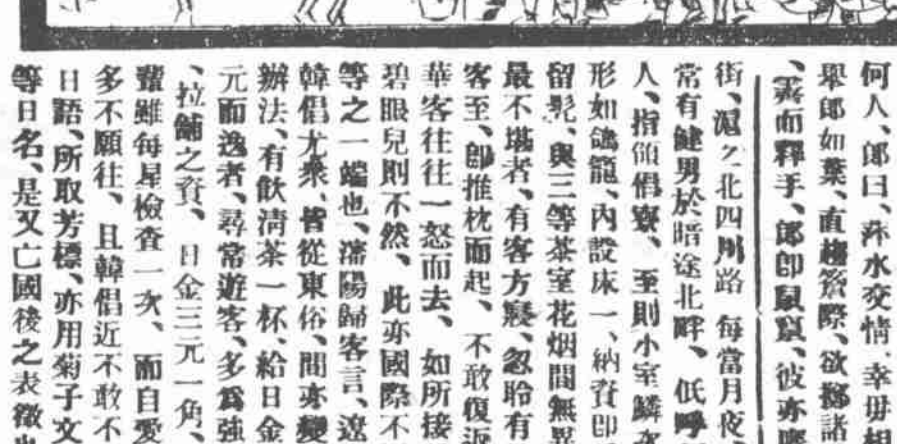 何人、郎曰、萍水交情、幸毋相
舉郎如葉、直趨簷際、欲擲諸
、霽而釋手、郎卽鼠竄、彼亦
街、滬之北四川路 每當月夜
常有健男於暗途北畔、低呼
人、指倩倡寮、至則小室鱗次
形如鴿籠、內設床一、納資卽
留髡、與三等茶室花烟間無異
最不堪者、有客方寢、忽聆有
客至、卽推枕而起、不敢復返
華客往往一怒而去、如所接
碧眼兒則不然、此亦國際不
等之一端也、瀋陽歸客言、遼
韓倡尤衆、皆從東俗、間亦變
辦法、有飲清茶一杯、給日金
元而逸者、尋常遊客、多爲強
、拉舖之資、日金三元一角、
豔雖每星檢查一次、而自愛
多不願往、且韓倡近不敢不
日語、所取芳標、亦用菊子文
等日名、是又亡國後之表徵也